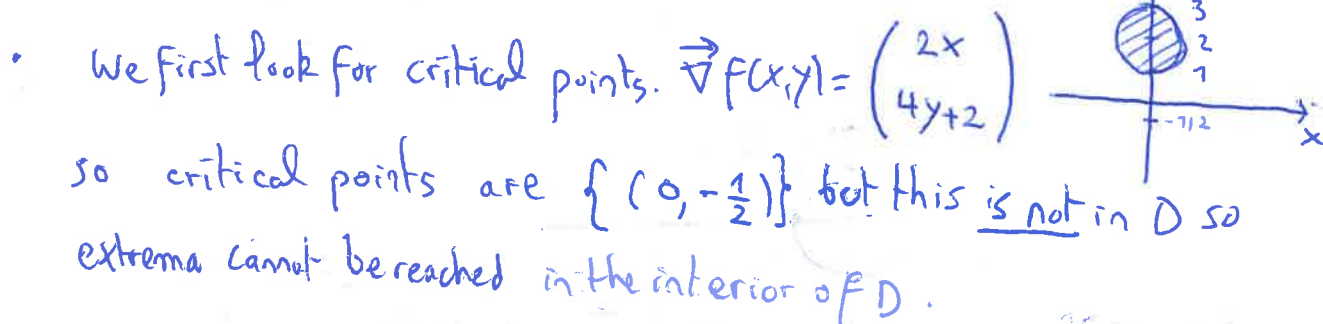 • We first look for critical points. ∇⃗ f(x,y) = ( 2x
4y+2 )
3
2
1
-1/2
x
so critical points are { (0, -1/2) } but this is not in D so
extrema cannot be reached in the interior of D.